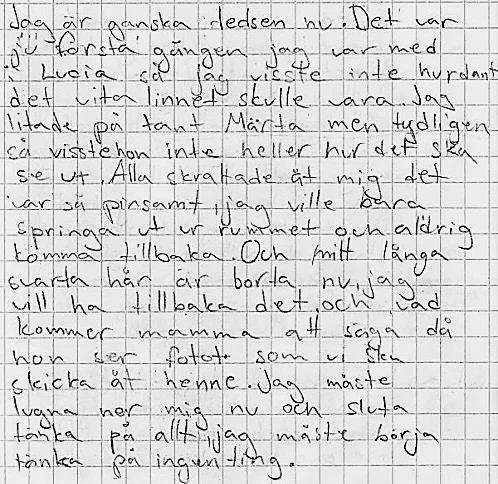 Jag är ganska ledsen nu. Det var
ju första gången jag var med
i Lucia så jag visste inte hurdant
det vita linnet skulle vara. Jag
litade på tant Märta men tydligen
så visste hon inte heller hur det ska
se ut. Alla skrattade åt mig det
var så pinsamt, jag ville bara
springa ut ur rummet och aldrig
komma tillbaka. Och mitt långa
svarta hår är borta nu, jag
vill ha tillbaka det, och vad
kommer mamma att säga då
hon ser fotot som vi ska
skicka åt henne. Jag måste
lugna ner mig nu och sluta
tänka på allt, jag måste börja
tänka på ingenting.